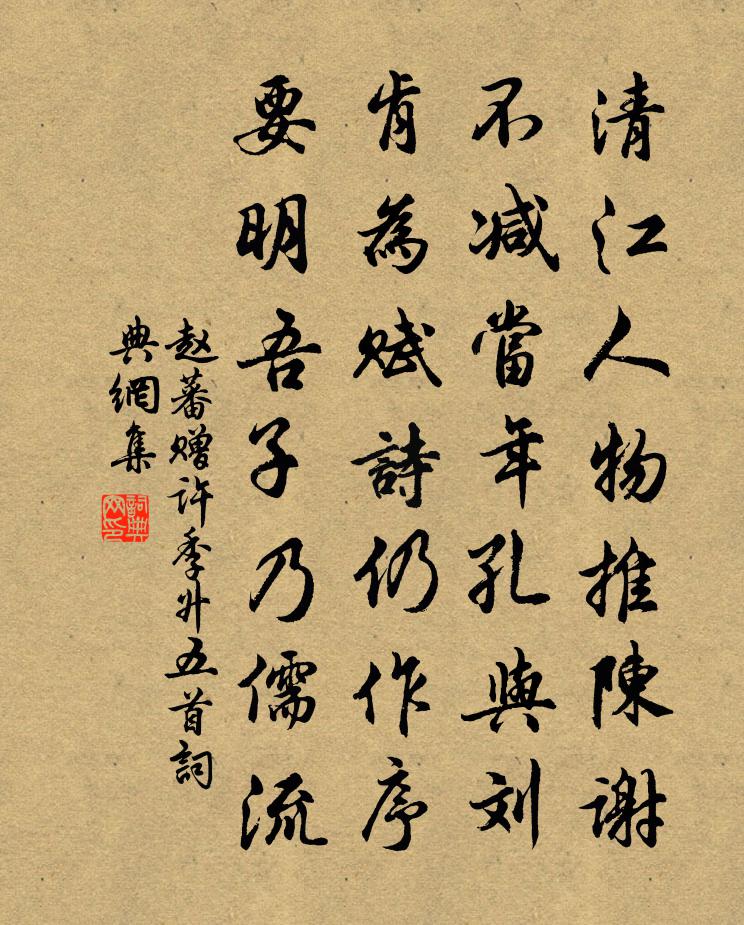 清江人物推陳謝
不減當年孔與刘
肯為赋詩仍作序
要明吾子乃儒流
赵蕃赠许季升五首詞
典網集
詞典
网印